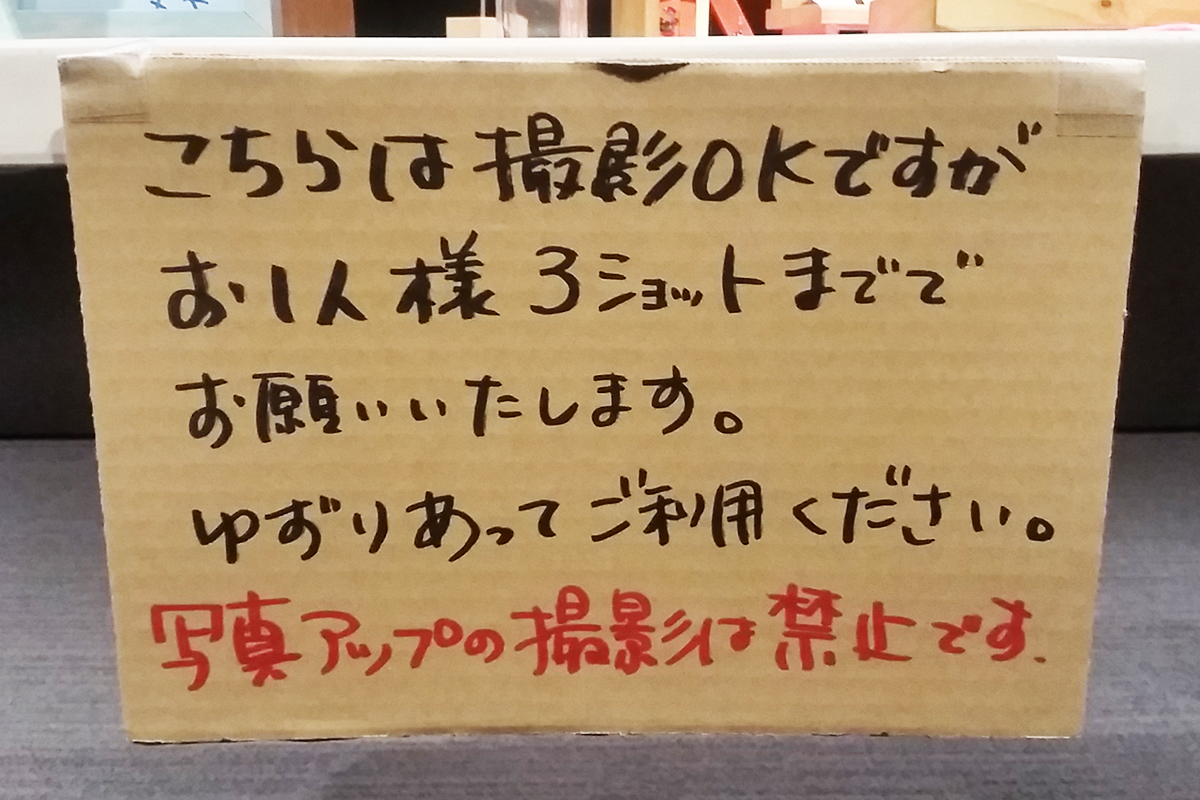 こちらは撮影OKですが
お1人様3ショットまでで
お願いいたします。
ゆずりあってご利用ください。
写真アップの撮影は禁止です.